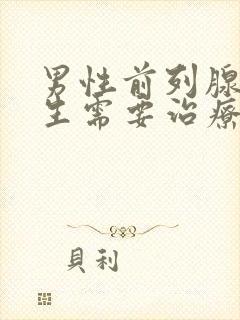 男性前列腺
生需要治療
貝利